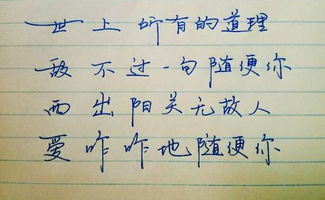 世上所有的道理
敌不过一句随便你
西出阳关无故人
爱咋咋地随便你